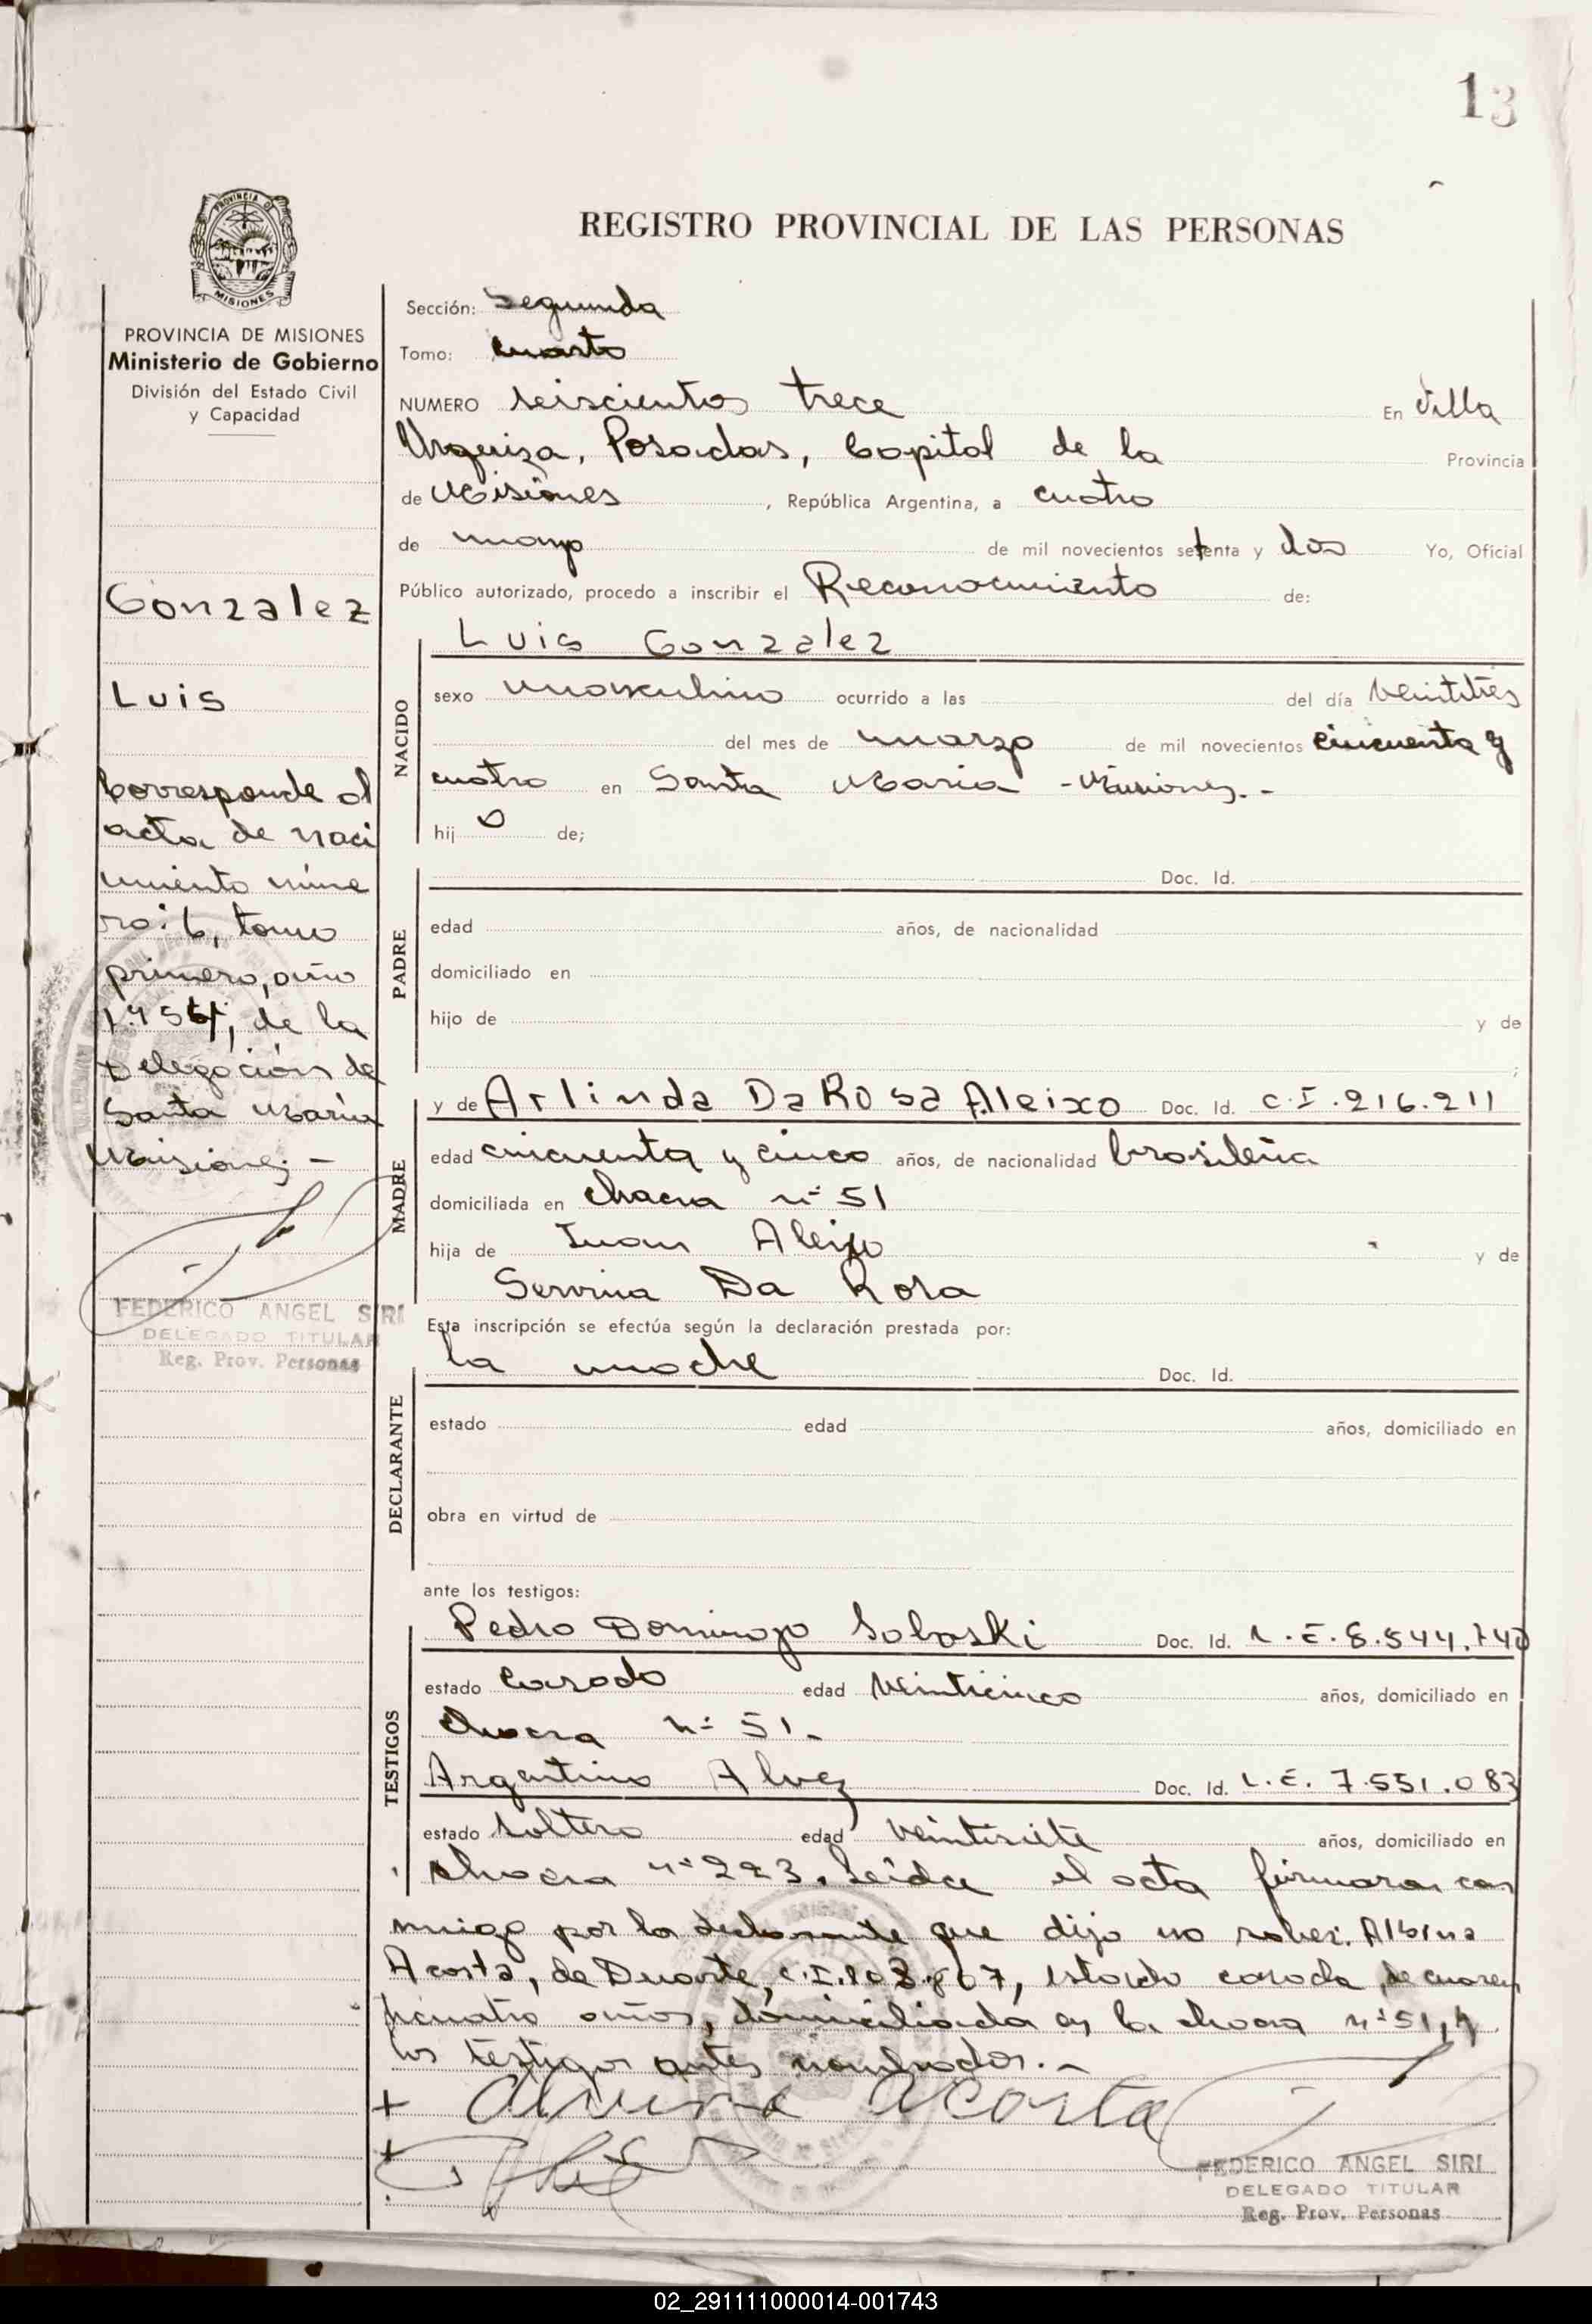 13
REGISTRO PROVINCIAL DE LAS PERSONAS
PROVINCIA DE
MISIONES
PROVINCIA DE MISIONES
Ministerio de Gobierno
División del Estado Civil
y Capacidad
Gonzalez
Luis
Corresponde al
acta de naci
miento núme
ro: 6, tomo
primero, año
1.954, de la
Delegación de
Santa Maria
Misiones -
FEDERICO ANGEL SIRI
DELEGADO TITULAR
Reg. Prov. Personas
Sección: Segunda
Tomo: Cuarto
NUMERO seiscientos trece En Villa
Urquiza, Posadas, Capital de la Provincia
de Misiones, República Argentina, a cuatro
de mayo de mil novecientos setenta y dos Yo, Oficial
Público autorizado, procedo a inscribir el Reconocimiento de:
NACIDO
Luis Gonzalez
sexo masculino ocurrido a las del día veintitres
del mes de marzo de mil novecientos cincuenta y
cuatro en Santa Maria - Misiones.-
hij o de;
PADRE
Doc. Id.
edad años, de nacionalidad
domiciliado en
hijo de y de
;
MADRE
y de Arlinda Da Rosa Aleixo Doc. Id. C.I. 216.211
edad cincuenta y cinco años, de nacionalidad brasileña
domiciliada en chacra nº 51
hija de Juan Aleixo y de
Servina Da Rosa
Esta inscripción se efectúa según la declaración prestada por:
DECLARANTE
la madre Doc. Id.
estado edad años, domiciliado en
obra en virtud de
ante los testigos:
TESTIGOS
Pedro Domingo Soboski Doc. Id. L.E. 8.544.740
estado Casado edad veinticinco años, domiciliado en
chacra nº 51.
Argentino Alvez Doc. Id. L.E. 7.551.083
estado soltero edad veintisiete años, domiciliado en
chacra nº 223. Leída el acta firmaron con
migo por la declarante que dijo no saber: Albina
Acosta, de Duarte, C.I. , estado casada, de cuaren
ticuatro años, domiciliada en la chacra nº 51, y
los testigos antes nombrados.-
+ Alvina Acosta
+
FEDERICO ANGEL SIRI
DELEGADO TITULAR
Reg. Prov. Personas
02_291111000014-001743